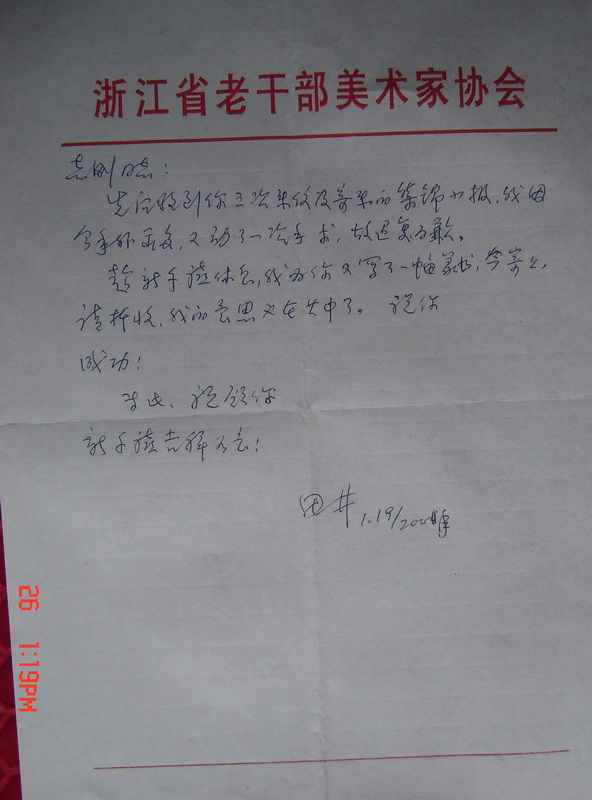 浙江省老干部美术家协会
志刚同志:
先后收到你三次来信及寄来的集锦小报,我因
今年外出,又动了一次手术,故迟复为歉。
新千禧,我为你又写了一幅篆书,今寄上,
请折收,我的意思也在其中了。 祝你
成功!
专此、祝愿你
新千禧吉祥如意!
田井 1.19/200
26 1:19PM